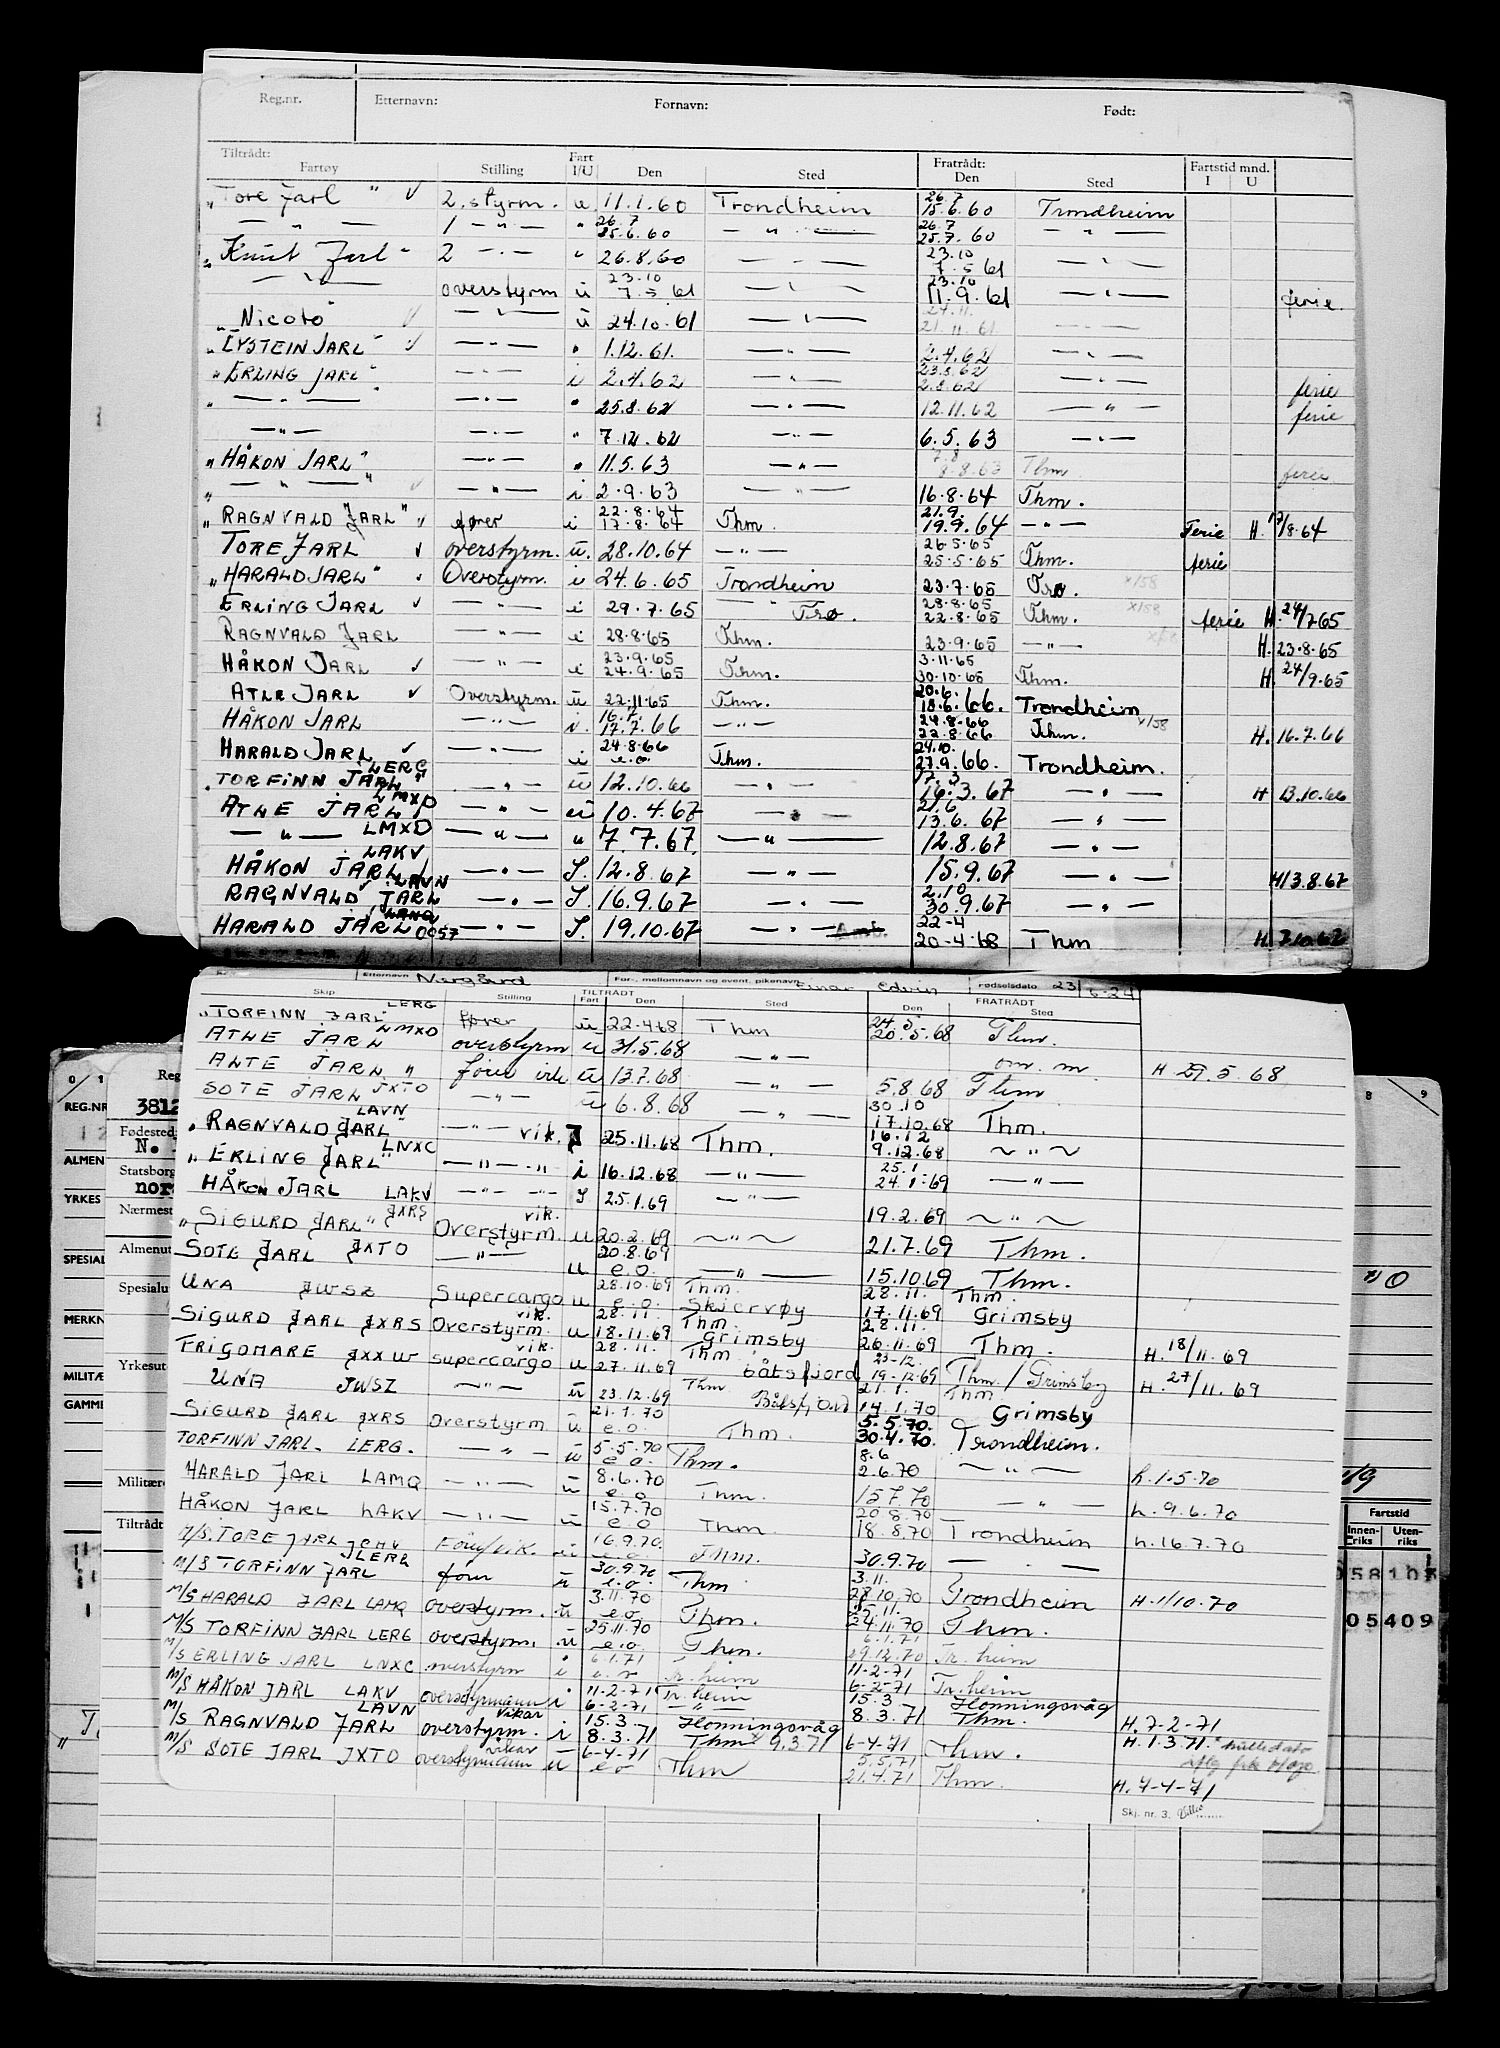 Reg.nr. Etternavn: Fornavn: Født:
Tiltrådt: Fratrådt: Fartstid mnd.
Fartøy Stilling Fart I/U Den Sted Den Sted I U
"Tore Jarl" ✓ 2. styrm. u 11.1.60 Trondheim 26.7 15.6.60 Trondheim
— " — 1 — " — " 26.7 25.6.60 — " — 26.7 25.7.60 — " —
"Knut Jarl" 2 — " — " 26.8.60 — " — 23.10 7.5.61 — " —
— " — overstyrm u 23.10 7.5.61 — " — 23.10 11.9.61 — " — ferie
"Nicoto" ✓ — " — u 24.10.61 — " — 24.11. 21.11.61 — " —
"EYSTEIN JARL" ✓ — " — " 1.12.61. — " — 2.4.62 — " —
"ERLING JARL" — " — i 2.4.62 — " — 23.8.62 2.8.62 — " — ferie
" — " — — " — " 25.8.62 — " — 12.11.62 — " — ferie
— " — — " — " 7.12.62 — " — 6.5.63 — " —
"HÅKON JARL" — " — " 11.5.63 — " — 7.8 8.8.63 Thm ferie
" — " — " ✓ — " — i 2.9.63 — " — 16.8.64 Thm.
"RAGNVALD JARL" ✓ fører i 22.8.64 17.8.64 Thm. 21.9. 19.9.64 — " — Ferie H. 17/8.64
TORE JARL ✓ overstyrm. u. 28.10.64 — " — 26.5.65 25.5.65 Thm. ferie
"HARALD JARL" ✓ Overstyrm. i 24.6.65 Trondheim 23.7.65 Trø. x/58
ERLING JARL ✓ — " — i 29.7.65 — " — Trø. 28.8.65 22.8.65 Thm. x/58 ferie H. 24/7-65
RAGNVALD JARL — " — i 28.8.65 Thm. 23.9.65 — " — H. 23.8.65
HÅKON JARL ✓ — " — i 23.9.65 24.9.65 Thm. 3.11.65 30.10.65 Thm. H. 24/9.65
ATLE JARL ✓ Overstyrm. u 22.11.65 Thm. 20.6. 18.6.66. Trondheim
HÅKON JARL — " — i 16.7. 17.7.66 — " — 24.8.66 22.8.66 Thm. x/58 H. 16.7.66
HARALD JARL ✓ — " — i 24.8.66 e.o. Thm. 24.10. 27.9.66. Trondheim.
"TORFINN JARL" LERG — " — u 12.10.66 — " — 17.3 16.3.67 — " — H 13.10.66
ATLE JARL LMXD — " — u 10.4.67 — " — 21.6 13.6.67 — " —
— " — LMXD — " — " 7.7.67. — " — 12.8.67 — " —
HÅKON JARL LAKV — " — I. 12.8.67 — " — 15.9.67 — " — H 13.8.67
RAGNVALD JARL LAVN — " — I. 16.9.67 — " — 2.10 30.9.67 — " —
HARALD JARL 0057 — " — I. 19.10.67 — " — 22-4 20-4-68 Thm H. 7.10.67
Etternavn Nergård For-, mellomnavn og event. pikenavn Einar Edvin Fødselsdato 23/6-24
Skip Stilling TILTRÅDT Fart Den Sted Den FRATRÅDT Sted
"TORFINN JARL" LERG fører u 22.4.68 Thm 24.5 20.5.68 Thm.
ATLE JARL LMXD overstyrm u 31.5.68 — " — om. m. H 29.5.68
ALTE JARL " fører vik u 13.7.68 — " — 5.8.68 Thm
SOTE JARL JXTO — " — u 6.8.68 — " — 30.10 17.10.68 Thm.
"RAGNVALD JARL" LAVN — " — vik. I 25.11.68 Thm. 16.12 9.12.68 ~ " ~
"ERLING JARL" LNXC — " — " i 16.12.68 — " — 25.1 24.1.69 — " —
HÅKON JARL LAKV — " — " — I 25.1.69 — " — 19.2.69 ~ " ~
"SIGURD JARL" JXRS vik. Overstyrm. u 20.2.69 ~ " ~ 21.7.69 Thm.
SOTE JARL JXTO — " — u 20.8.69 e.o. — " — 15.10.69 Thm.
UNA JWSZ Supercargo u 28.10.69 e.o. Thm. Skjervøy 28.11. 17.11.69 Thm. Grimsby
SIGURD JARL JXRS vik. Overstyrm. u 28.11. 18.11.69 Thm. Grimsby 28.11. 26.11.69 Thm. H. 18/11.69
FRIGOMARE JXXW vik. supercargo u 28.11. 27.11.69 Thm. båtsfjord 23-12. 19-12-69 Thm. / Grimsby H. 27/11.69
UNA JWSZ — " — u 23.12.69 Thm Båtsfj. 21.1. 14.1.70 Thm Grimsby
SIGURD JARL JXRS overstyrm u 21.1.70 e.o. Thm. 5.5.70. 30.4.70. Trondheim.
TORFINN JARL. LERG. — " — u 5-5.70 e.o. Thm. 8.6 2.6.70 ~ " — h. 1.5.70
HARALD JARL LAMQ — " — u 8.6.70 e.o. Thm. 15.7.70 — " — h. 9.6.70
HÅKON JARL LAKV — " — u 15.7.70 e.o Thm. 20.8.70 18.8.70 Trondheim h. 16.7.70
M/S. TORE JARL Fører/vik. u 16.9.70. e.o. Thm. 30.9.70 — " —
M/S TORFINN JARL LERG fører u 30.9.70 e.o. Thm 3.11. 28.10.70 Trondheim H. 1/10.70
M/S HARALD JARL LAMQ overstyrm. u 3.11.70 e.o. Thm. 25.11. 24.11.70 Thm.
M/S TORFINN JARL LERG overstyrm. u 25.11.70 e.o. Thm. 6.1.71 29.12.70 Tr.heim
M/S ERLING JARL LNXC overstyrm i 6.1.71 e.o Tr.heim 11-2-71 6-2-71 Tr.heim
M/S HÅKON JARL LAKV overstyrmann i 11-2-71 6-2-71 Tr.heim — " — 15.3 8.3.71 Honningsvåg Thm. H. 7-2-71
M/S RAGNVALD JARL LAVN vikar overstyrm. i 15.3. 8.3.71 Honningsvåg Thm 9.3.71 6-4-71 Thm. H. 1.3.71.
M/S SOTE JARL JXTO vikar overstyrmann u 6-4-71 e o Thm 5.5.71 21.4.71 Thm. H. 7-4-71
Skj. nr. 3.
REG.NR
3812
Fødested
N.
Statsborg
nors
Nærmest
Almenut
Spesialu
Yrkesut
Militære
Tiltrådt
ALMEN
YRKES
SPESIAL
MERKN
MILITÆ
GAMME
8 9
Fartstid
Innen-riks Uten-riks
05409